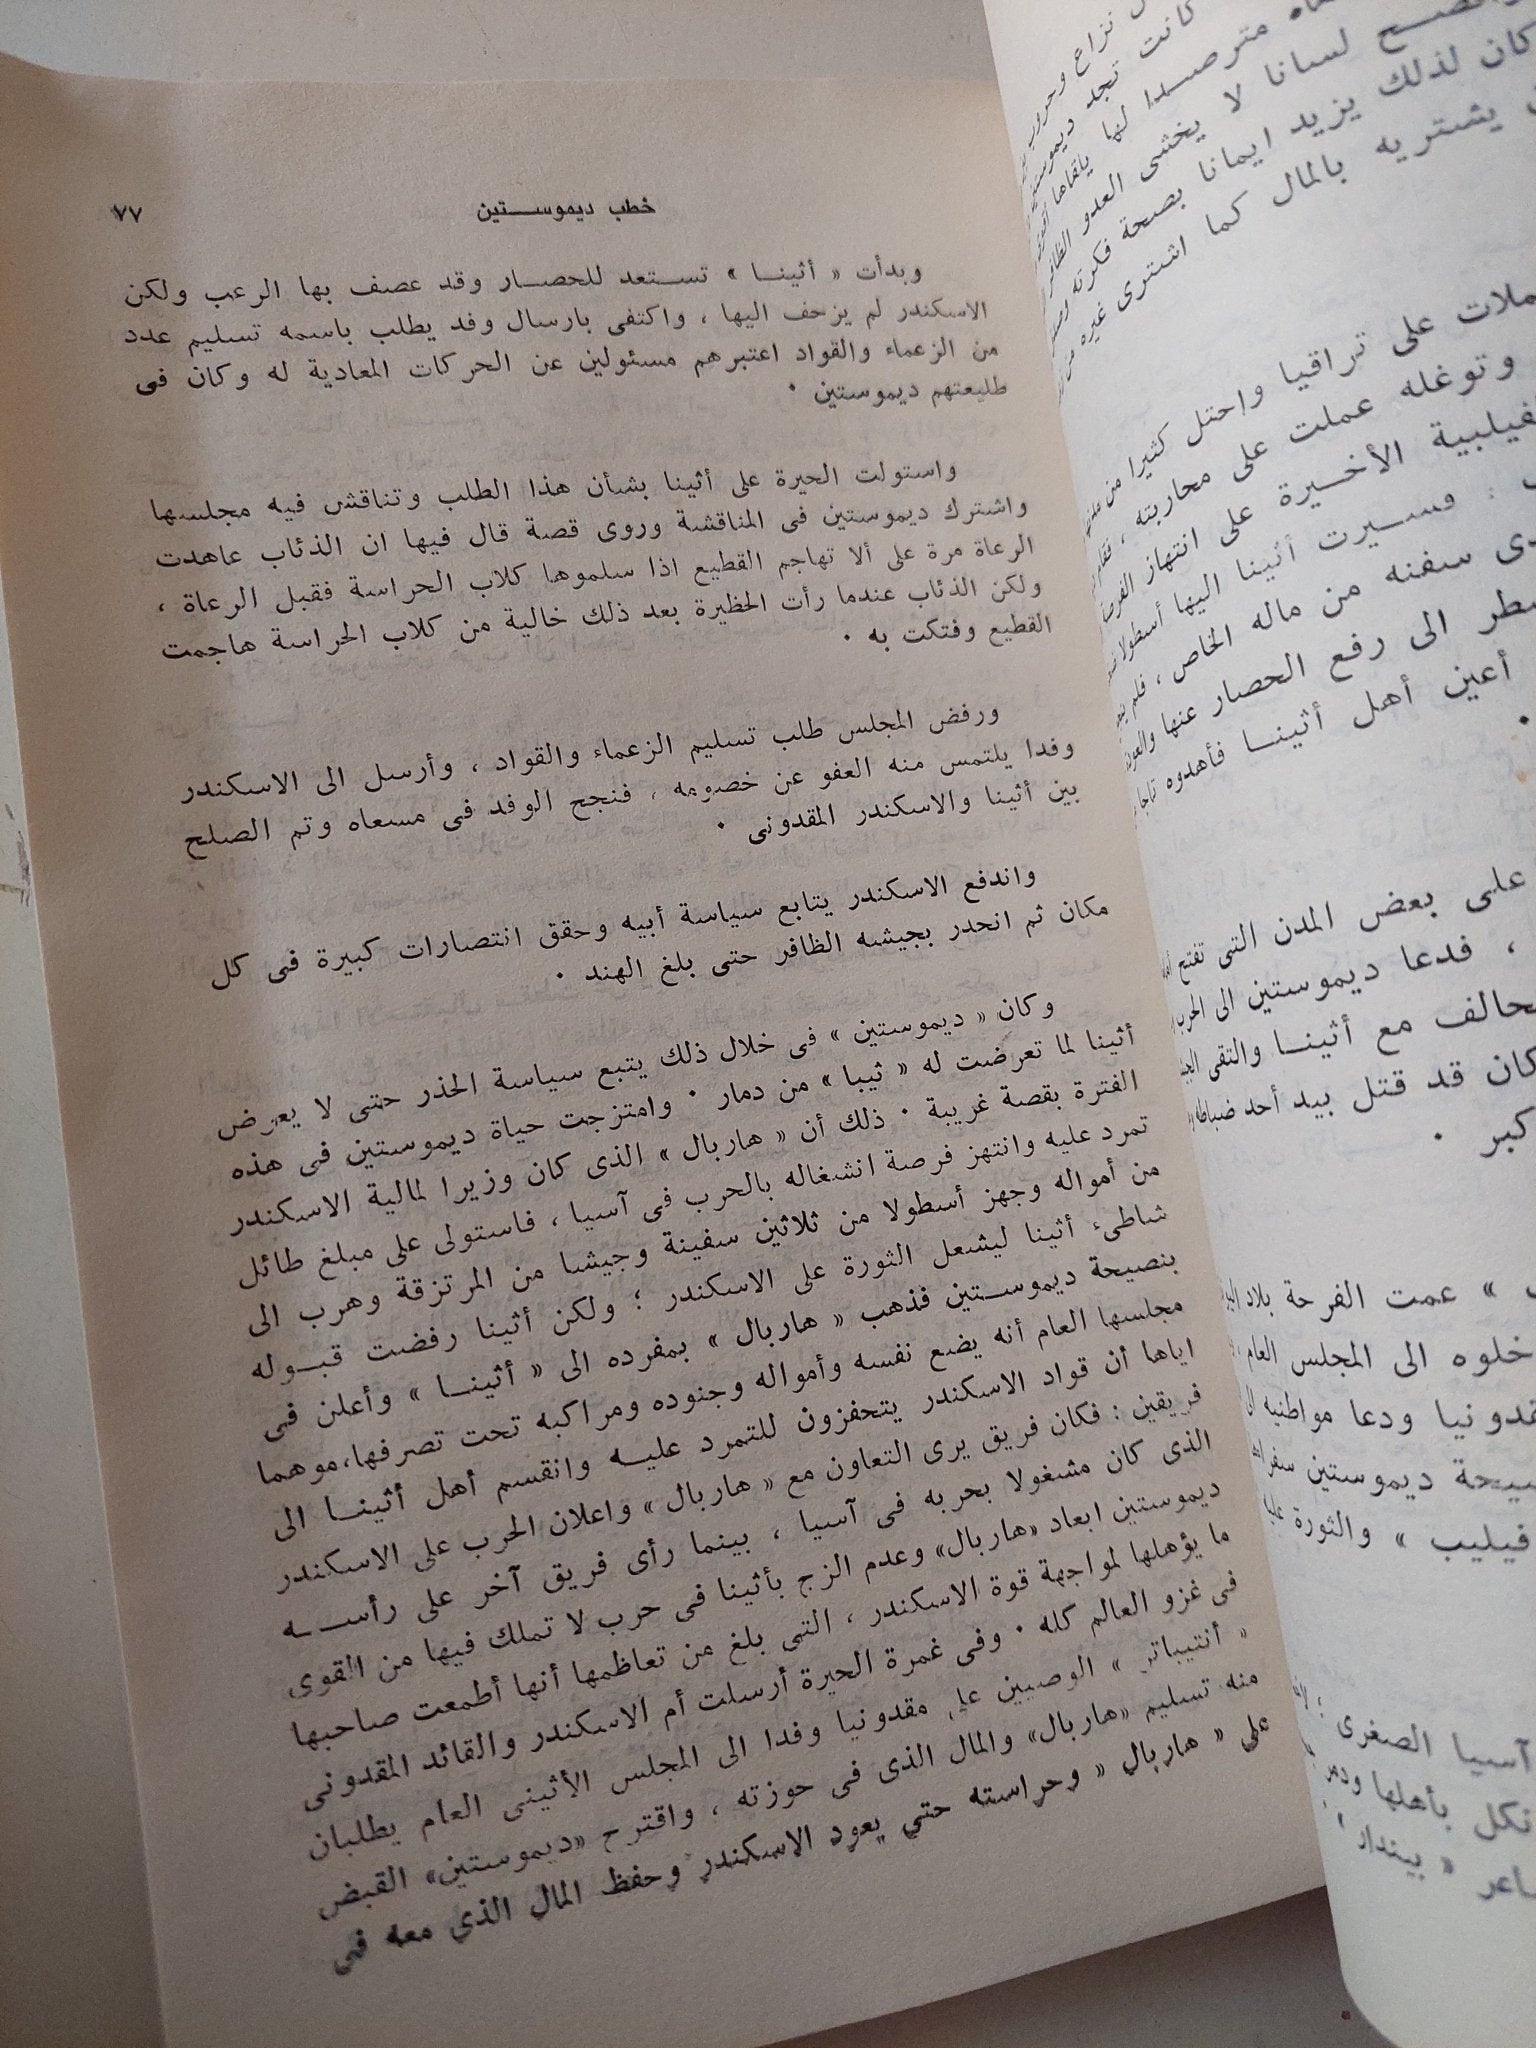 خطب ديموستين
٧٧
وبدأت « أثينا » تستعد للحصار وقد عصف بها الرعب ولكن
الاسكندر لم يزحف اليها ، واكتفى بارسال وفد يطلب باسمه تسليم عدد
من الزعماء والقواد اعتبرهم مسئولين عن الحركات المعادية له وكان فى
طليعتهم ديموستين ٠
واستولت الحيرة على أثينا بشأن هذا الطلب وتناقش فيه مجلسها
واشترك ديموستين فى المناقشة وروى قصة قال فيها ان الذئاب عاهدت
الرعاة مرة على ألا تهاجم القطيع اذا سلموها كلاب الحراسة فقبل الرعاة ،
ولكن الذئاب عندما رأت الحظيرة بعد ذلك خالية من كلاب الحراسة هاجمت
القطيع وفتكت به ٠
ورفض المجلس طلب تسليم الزعماء والقواد ، وأرسل الى الاسكندر
وفدا يلتمس منه العفو عن خصومه ، فنجح الوفد فى مسعاه وتم الصلح
بين أثينا والاسكندر المقدونى ٠
واندفع الاسكندر يتابع سياسة أبيه وحقق انتصارات كبيرة فى كل
مكان ثم انحدر بجيشه الظافر حتى بلغ الهند ٠
وكان « ديموستين » فى خلال ذلك يتبع سياسة الحذر حتى لا يعرض
أثينا لما تعرضت له « ثيبا » من دمار ٠ وامتزجت حياة ديموستين فى هذه
الفترة بقصة غريبة ٠ ذلك أن « هاربال » الذى كان وزيرا لمالية الاسكندر
تمرد عليه وانتهز فرصة انشغاله بالحرب فى آسيا ، فاستولى على مبلغ طائل
من أمواله وجهز أسطولا من ثلاثين سفينة وجيشا من المرتزقة وهرب الى
شاطىء أثينا ليشعل الثورة على الاسكندر ؛ ولكن أثينا رفضت قبوله
بنصيحة ديموستين فذهب « هاربال » بمفرده الى « أثينا » وأعلن فى
مجلسها العام أنه يضع نفسه وأمواله وجنوده ومراكبه تحت تصرفها،موهما
اياها أن قواد الاسكندر يتحفزون للتمرد عليه وانقسم أهل أثينا الى
فريقين : فكان فريق يرى التعاون مع « هاربال » واعلان الحرب على الاسكندر
الذى كان مشغولا بحربه فى آسيا ، بينما رأى فريق آخر على رأسه
ديموستين ابعاد «هاربال» وعدم الزج بأثينا فى حرب لا تملك فيها من القوى
ما يؤهلها لمواجهة قوة الاسكندر ، التى بلغ من تعاظمها أنها أطمعت صاحبها
فى غزو العالم كله ٠ وفى غمرة الحيرة أرسلت أم الاسكندر والقائد المقدونى
« أنتيباتر » الوصيين على مقدونيا وفدا الى المجلس الأثينى العام يطلبان
منه تسليم «هاربال» والمال الذى فى حوزته ، واقترح «ديموستين» القبض
على « هاربال » وحراسته حتى يعود الاسكندر وحفظ المال الذى معه فى
نزاع وحروب
كانت تجد
مترصدا لها
لسانا لا يخشى العدو
كان لذلك يزيد ايمانا بصحة فكرته
يشتريه بالمال كما اشترى غيره من
على تراقيا واحتل كثيرا من
وتوغله عملت على محاربته ،
الأخيرة على انتهاز
وسيرت أثينا اليها أسطولا
سفنه من ماله الخاص ، فلم
الى رفع الحصار عنها
أعين أهل أثينا فأهدوه تاجا
على بعض المدن التى تفتح
، فدعا ديموستين الى الحرب
مع أثينا والتقى
كان قد قتل بيد أحد ضباطه
» عمت الفرحة بلاد
الى المجلس العام
ودعا مواطنيه
ديموستين
فيليب » والثورة
آسيا الصغرى
بأهلها
« بيندار